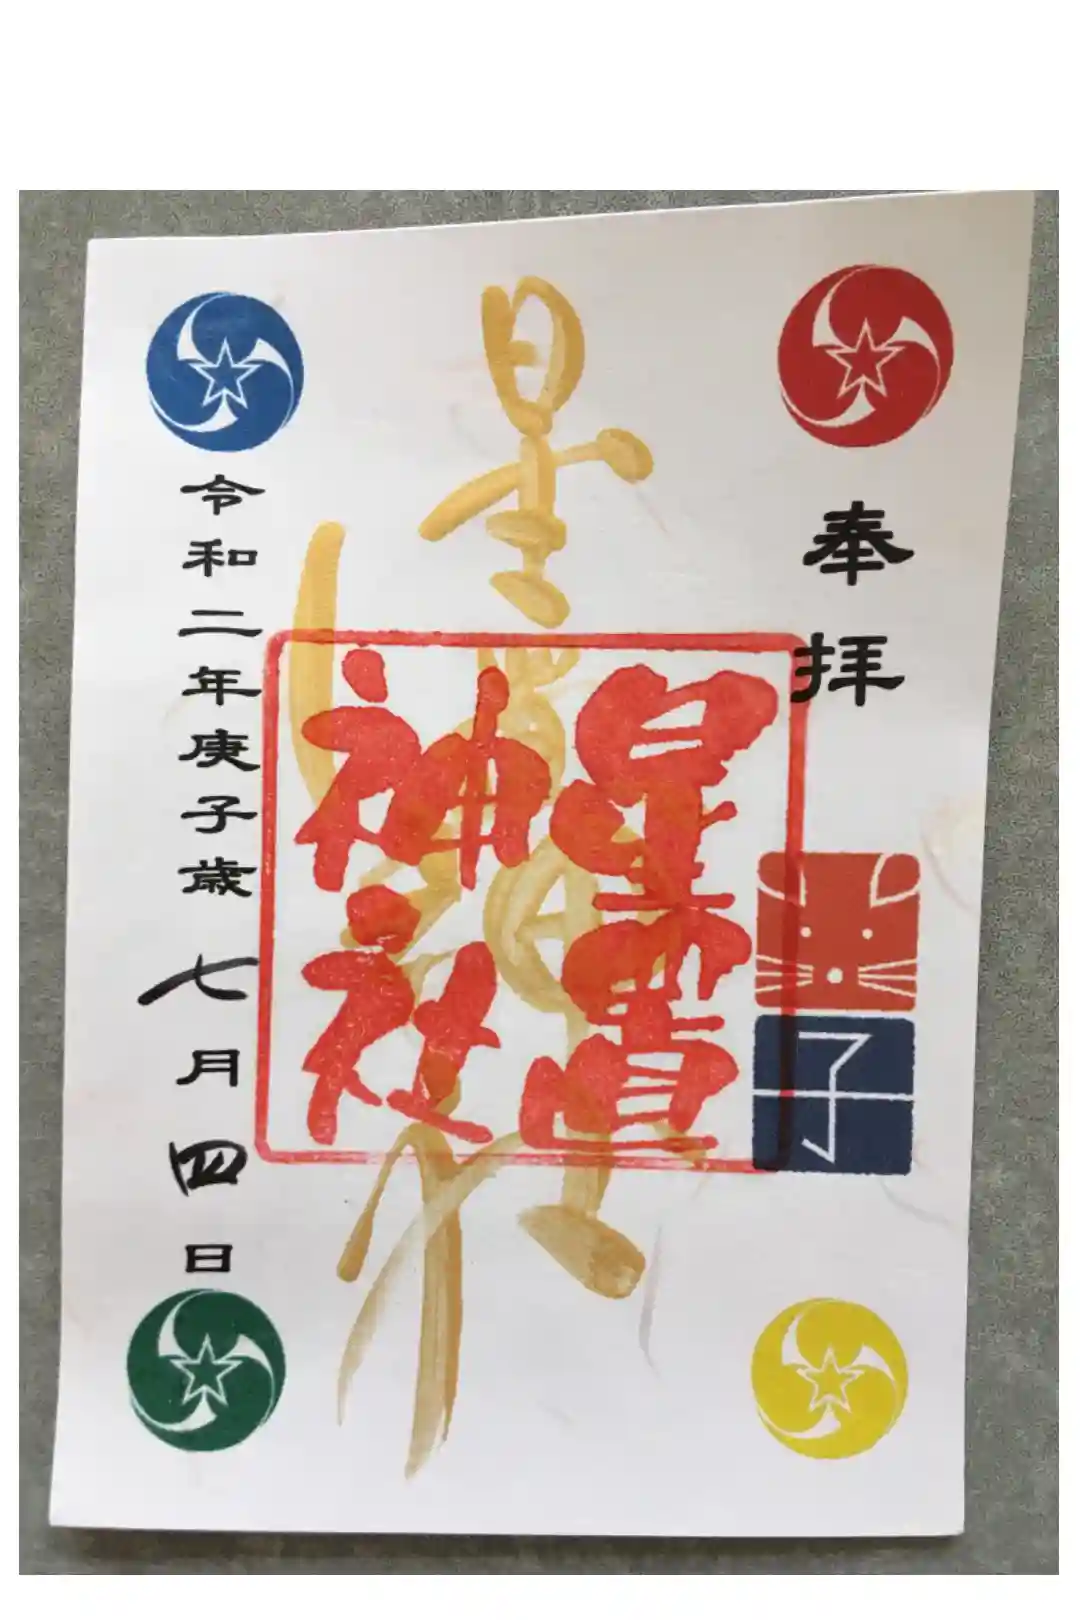 奉拝
子
星
星置
神社
令和二年庚子歳七月四日